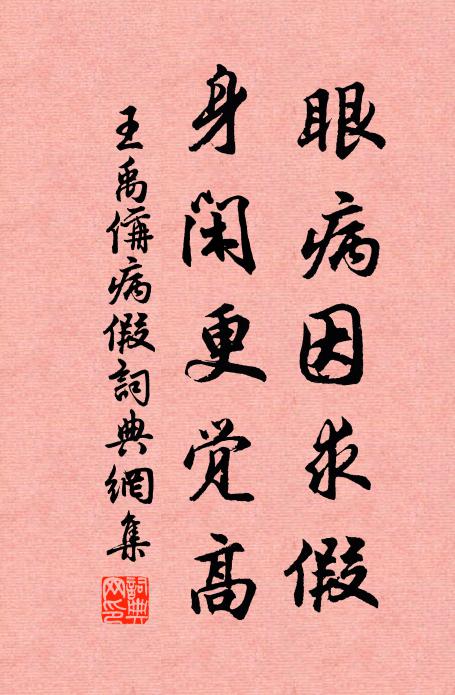 眼病因求假
身闲更觉高
王禹偁病假詞典網集
詞典
网印